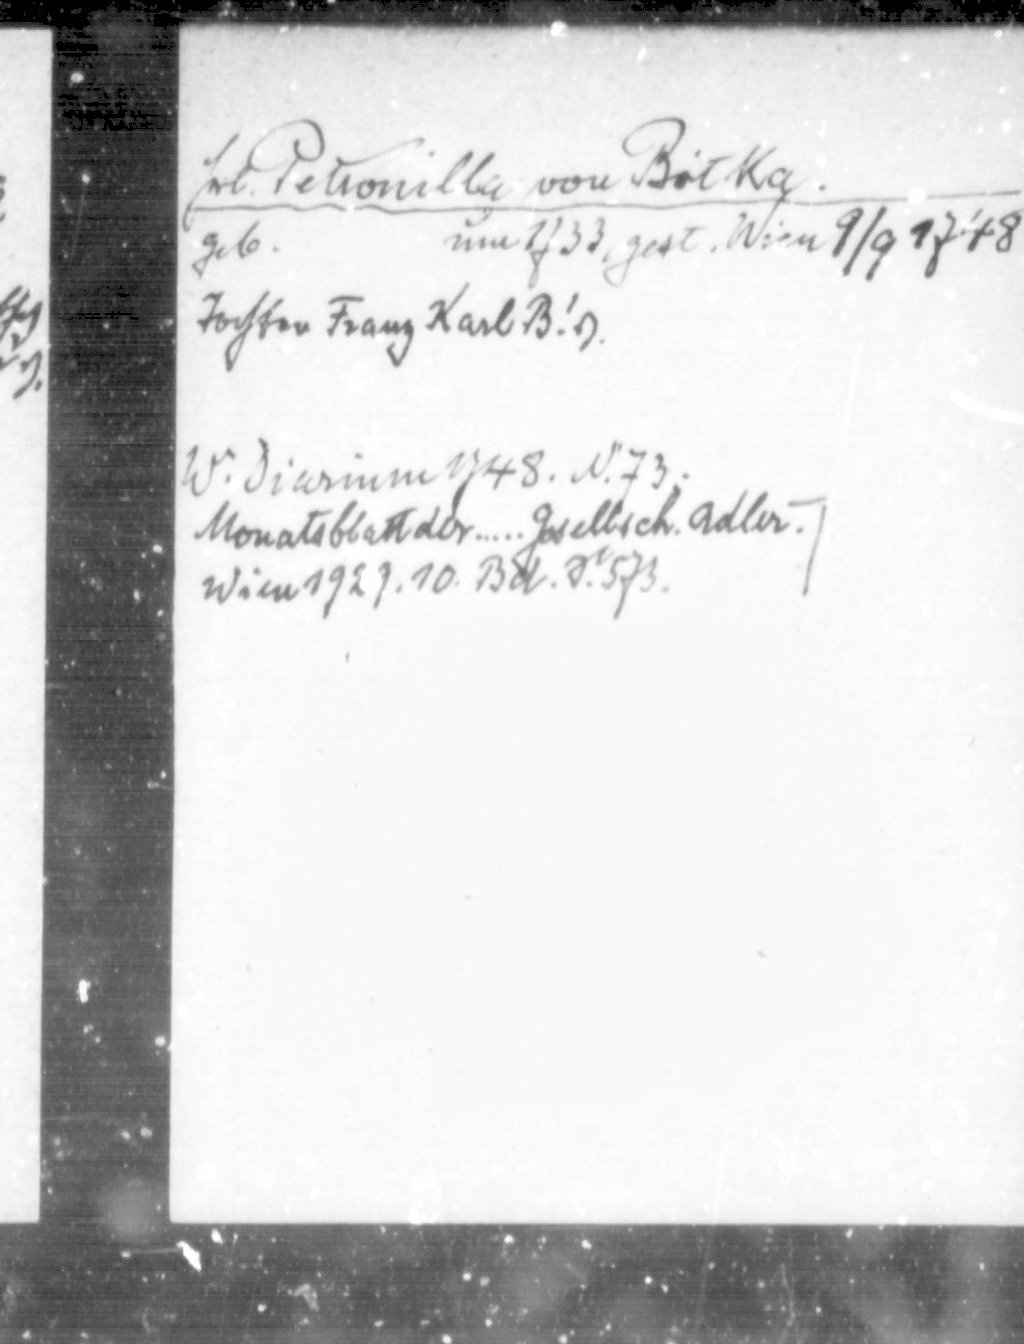 Frl. Petronilla von Bótka.
geb. um 1733, gest. Wien 9/9 1748
Tochter Franz Karl B!s.
W. Diarium 1748. N. 73.
Monatsblatt der..... Gesellsch. Adler.
Wien 1929. 10. Bd. S. 573.